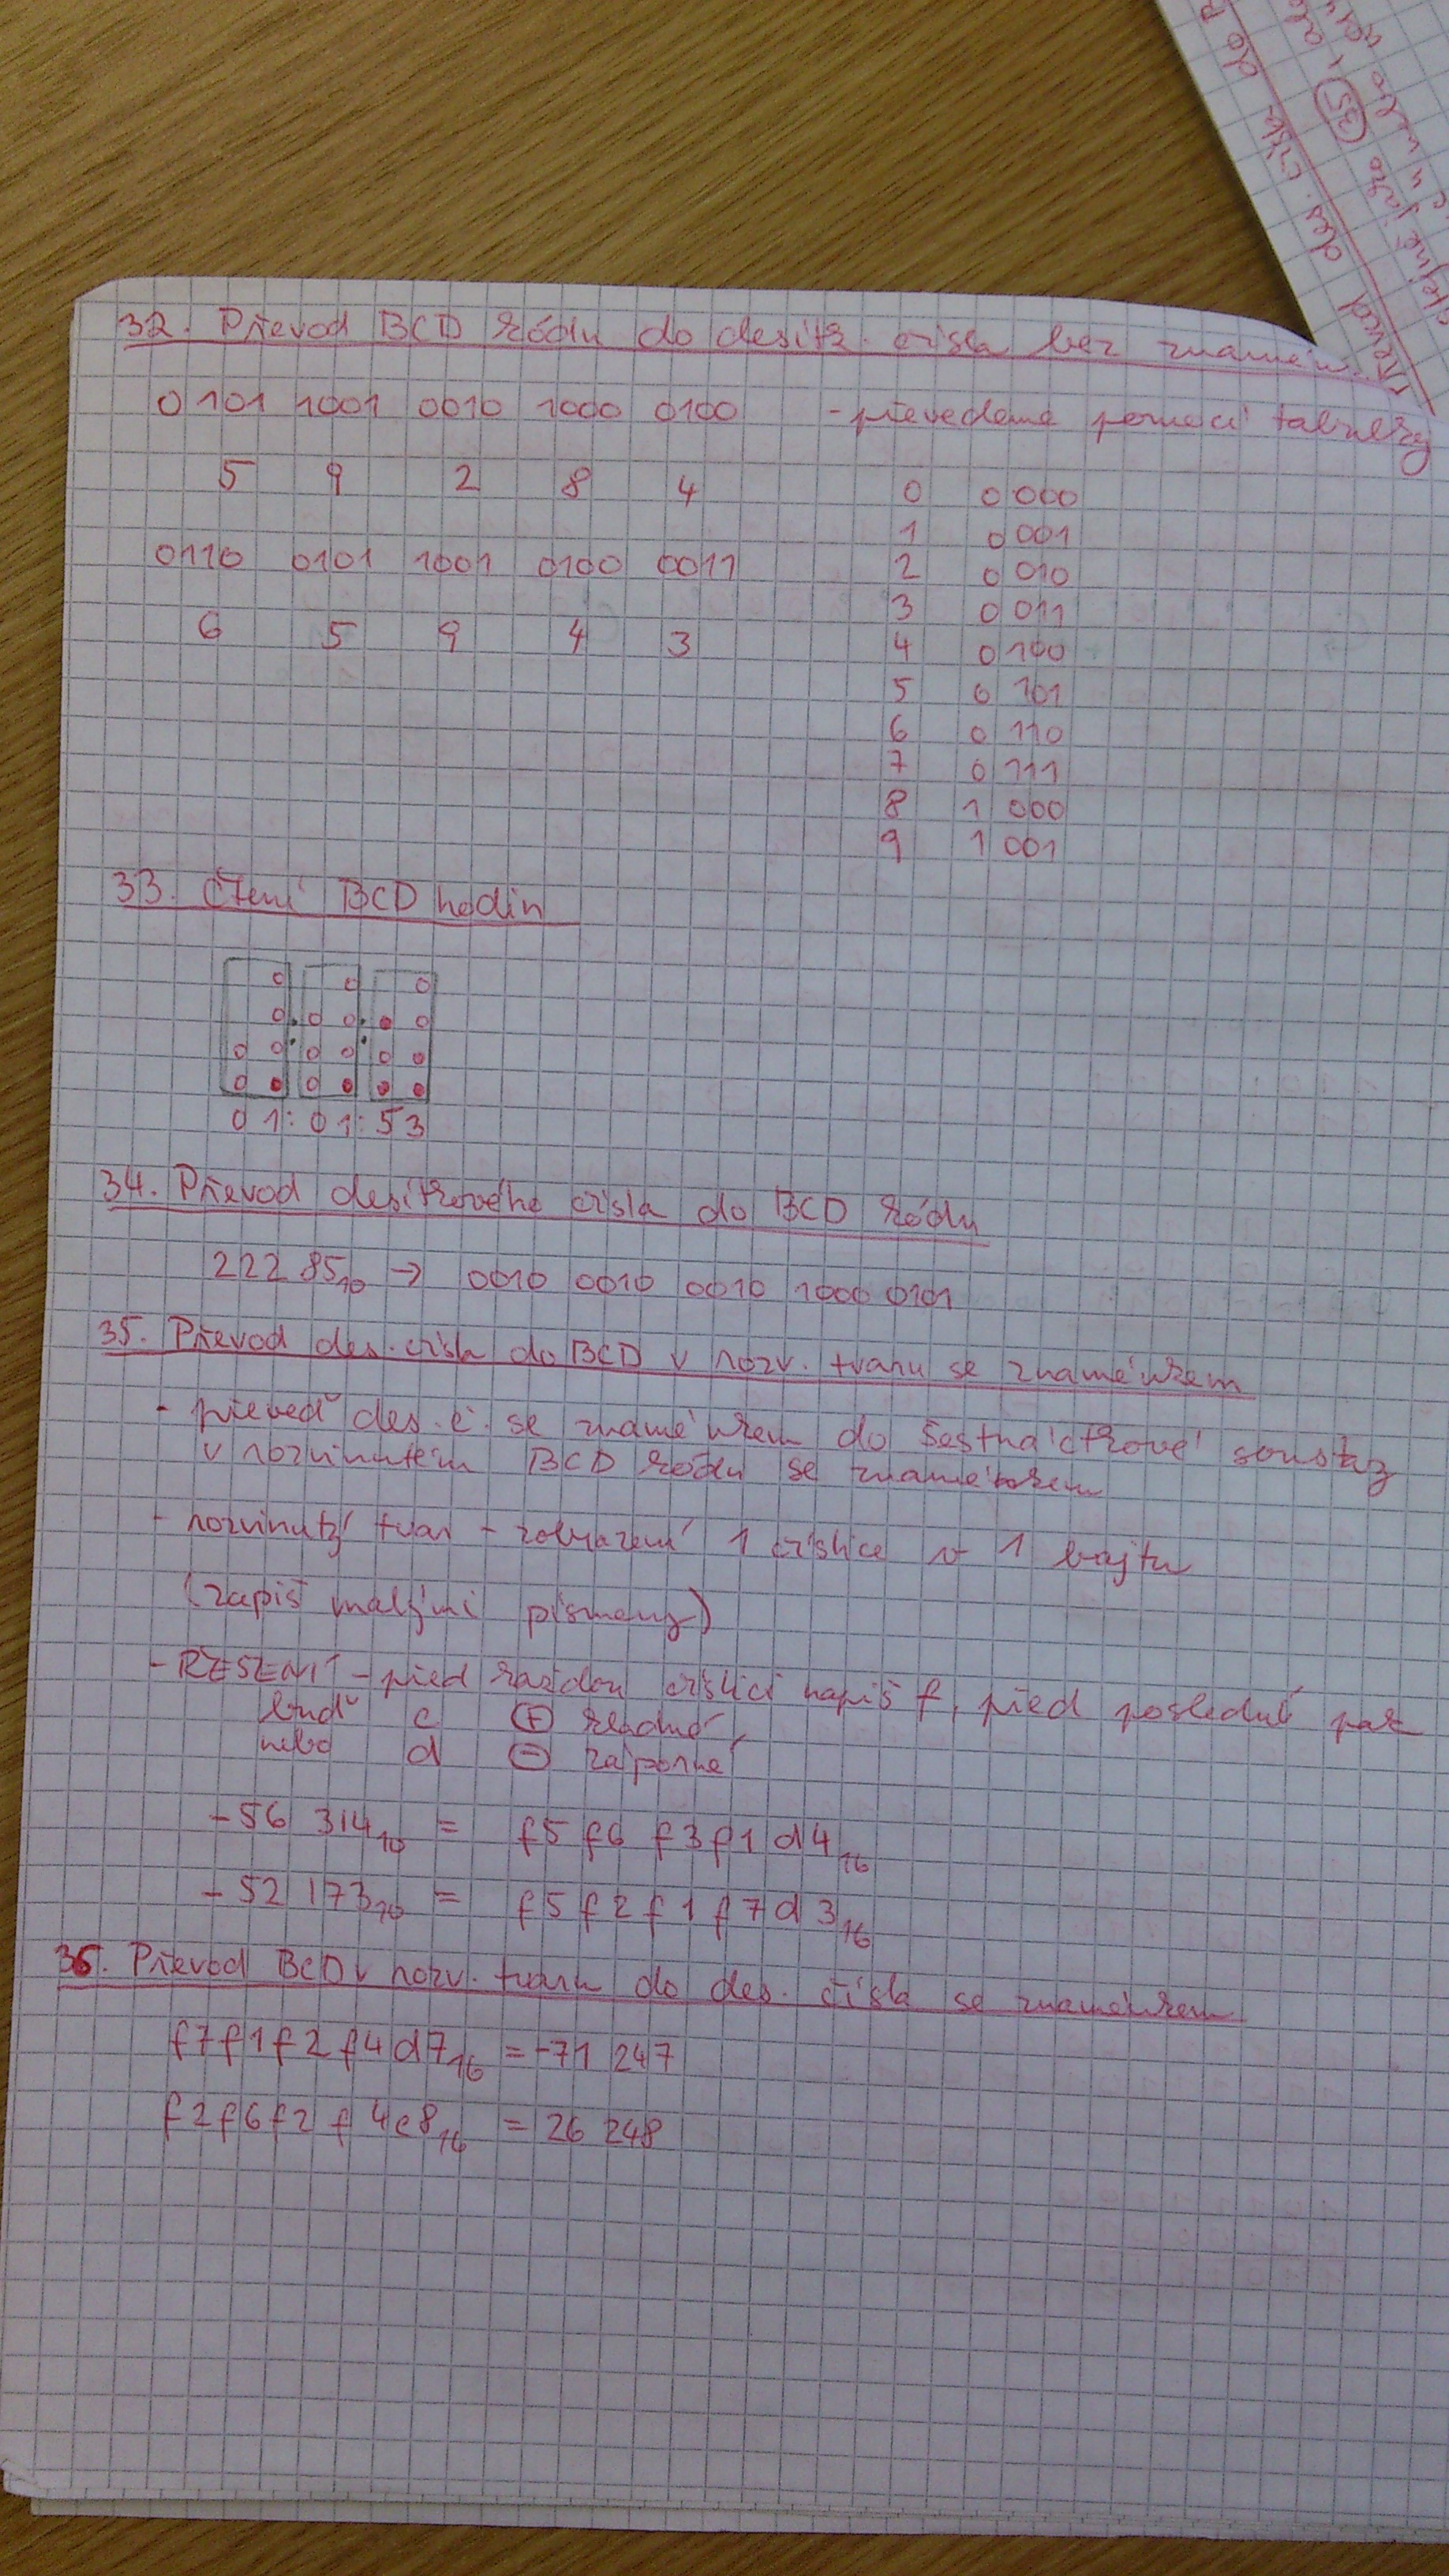 32. Převod BCD kódu do desítk. čísla bez znamén.
0101 1001 0010 1000 0100 - převedeme pomocí tabulky
5 9 2 8 4
0 0000
1 0001
0110 0101 1001 0100 0011
2 0010
3 0011
6 5 9 4 3
4 0100
5 0101
6 0110
7 0111
8 1000
9 1001
33. Čtení BCD hodin
01:01:53
34. Převod desítkového čísla do BCD kódu
222 85₁₀ → 0010 0010 0010 1000 0101
35. Převod des. čísla do BCD v rozv. tvaru se znaménkem
- převeď des. č. se znaménkem do šestnáctkové soustavy
v rozvinutém BCD kódu se znaménkem
- rozvinutý tvar - zobrazení 1 číslice v 1 bajtu
(zapiš malými písmeny)
- ŘEŠENÍ - před každou číslici napiš f, před poslední pak
buď c + kladné,
nebo d - záporné
-56 314₁₀ = f5 f6 f3 f1 d4₁₆
-52 173₁₀ = f5 f2 f1 f7 d3₁₆
36. Převod BCD v rozv. tvaru do des. čísla se znaménkem
f7 f1 f2 f4 d7₁₆ = -71 247
f2 f6 f2 f4 c8₁₆ = 26 248
35